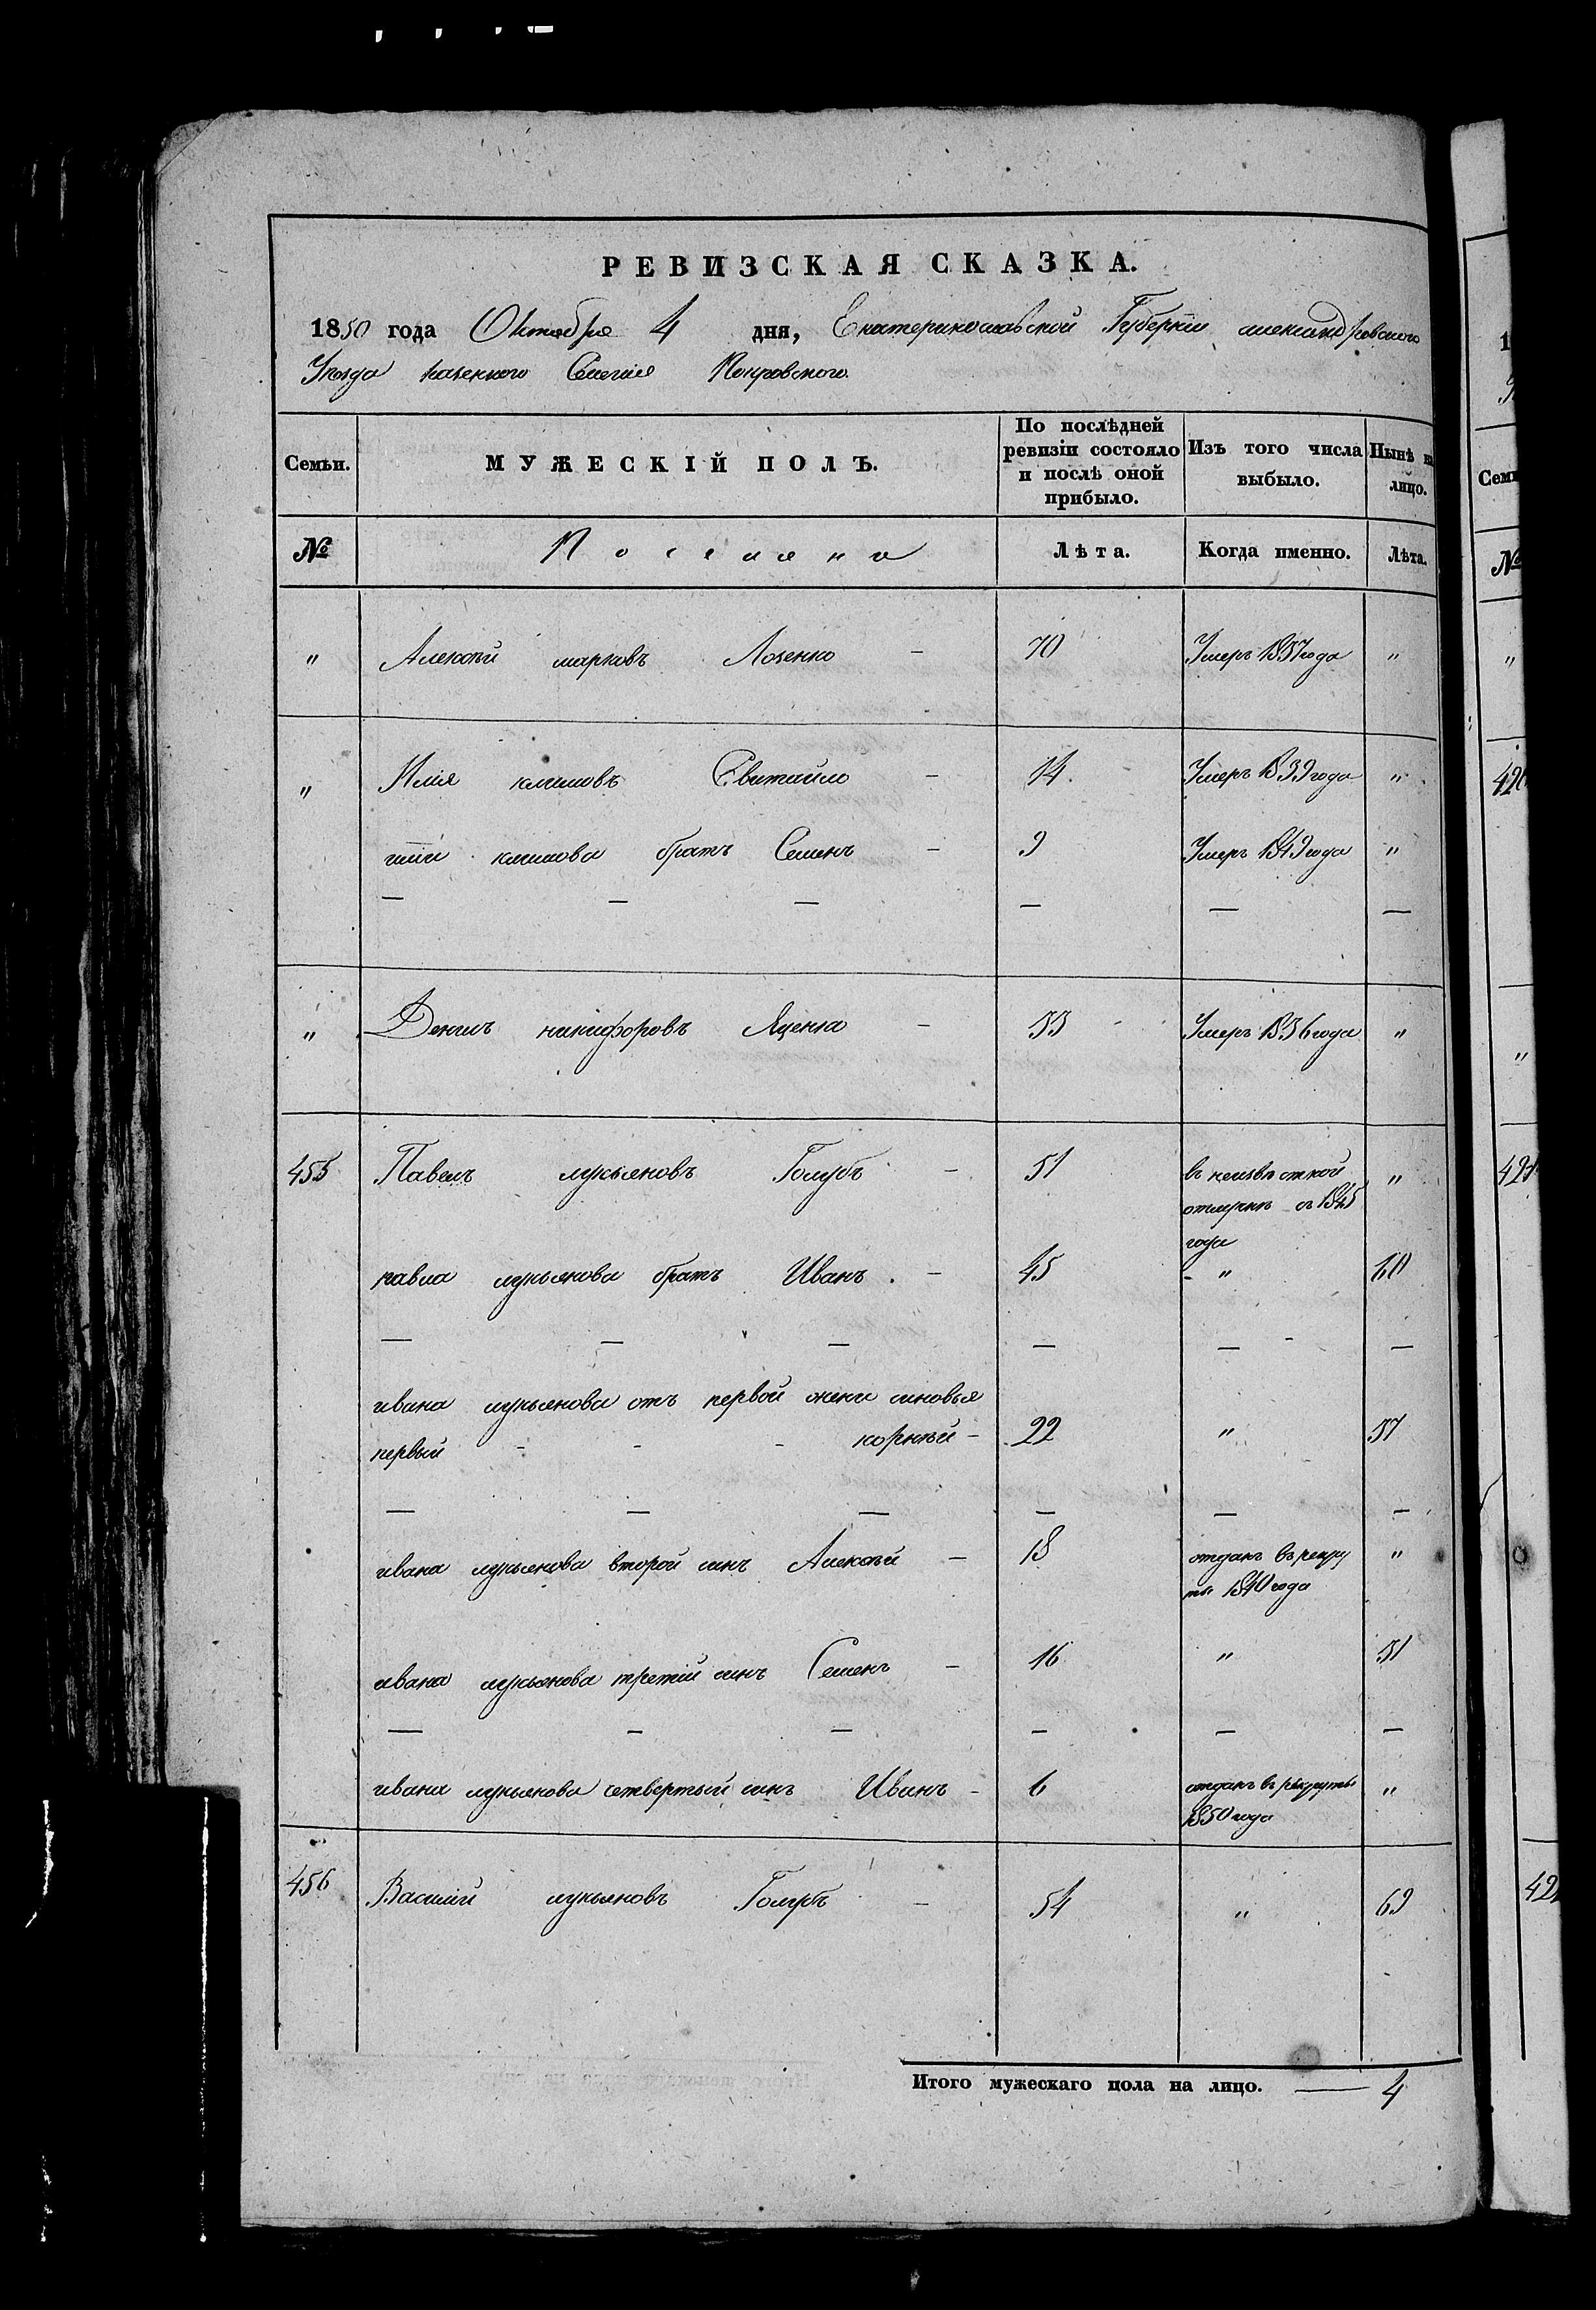 РЕВИЗСКАЯ СКАЗКА.
1850 года Октября 4 дня, Екатеринославской Губерніи александровского
Уезда казенного Селенія Покровского.
Семьи. МУЖЕСКІЙ ПОЛЪ. По послѣдней ревизіи состояло и послѣ оной прибыло. Изъ того числа выбыло. Нынѣ на лицо.
№ Поселяне Лѣта. Когда именно. Лѣта.
" Алексѣй марковъ Лозенко - 70 Умеръ 1837 года "
" Илія климовъ Свитайло - 14. Умеръ 1839 года "
иліи климова братъ Семенъ - 9 Умеръ 1849 года "
— — — — — —
" Денисъ никифоровъ Яценко - 33 Умеръ 1836 года "
455 Павелъ лукьяновъ Голубъ - 51 въ неизвѣстной "
отлучкѣ съ 1845
года
павла лукьянова братъ Иванъ. - 45 - " 60
— — — — — —
ивана лукьянова отъ первой жени синовья
первый - - - корнѣй - 22 " 37
— — — — — —
ивана лукьянова второй синъ Алексѣй - 18 отданъ въ рекру "
ты 1840 года
ивана лукьянова третій синъ Семенъ - 16 " 31
— — — — — —
ивана лукьянова четвертый синъ Иванъ - 6 отданъ въ рекруты "
1850 года
456 Василій лукьяновъ Голубъ - 54 " 69
Итого мужескаго пола на лицо. — 4